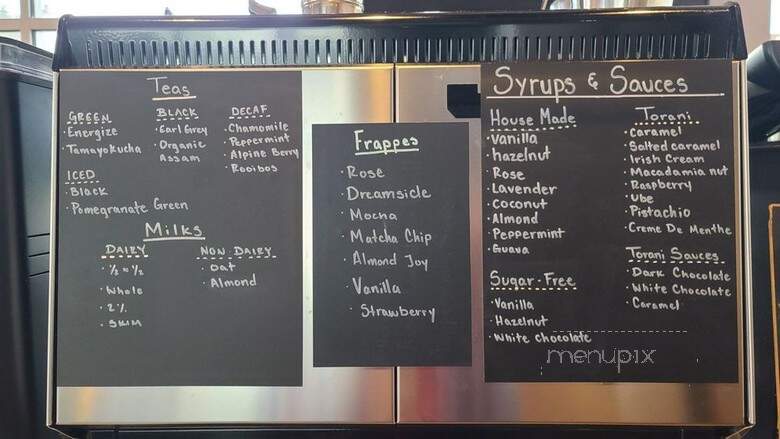 Teas
GREEN
· Energize
· Tamayokucha
BLACK
· Earl Grey
· Organic
Assam
DECAF
· Chamomile
· Peppermint
· Alpine Berry
· Rooibos
ICED
· Black
· Pomegranate Green
Milks
DAIRY
· ½ n ½
· Whole
· 2%
· SKIM
NON DAIRY
· Oat
· Almond
Frappes
· Rose
· Dreamsicle
· Mocha
· Matcha Chip
· Almond Joy
· Vanilla
· Strawberry
Syrups & Sauces
House Made
· Vanilla
· hazelnut
· Rose
· Lavender
· Coconut
· Almond
· Peppermint
· Guava
Sugar-Free
· Vanilla
· Hazelnut
· White Chocolate
Torani
· Caramel
· Salted caramel
· Irish Cream
· Macadamia nut
· Raspberry
· Ube
· Pistachio
· Creme De Menthe
Torani Sauces
· Dark Chocolate
· White Chocolate
· Caramel
menupix